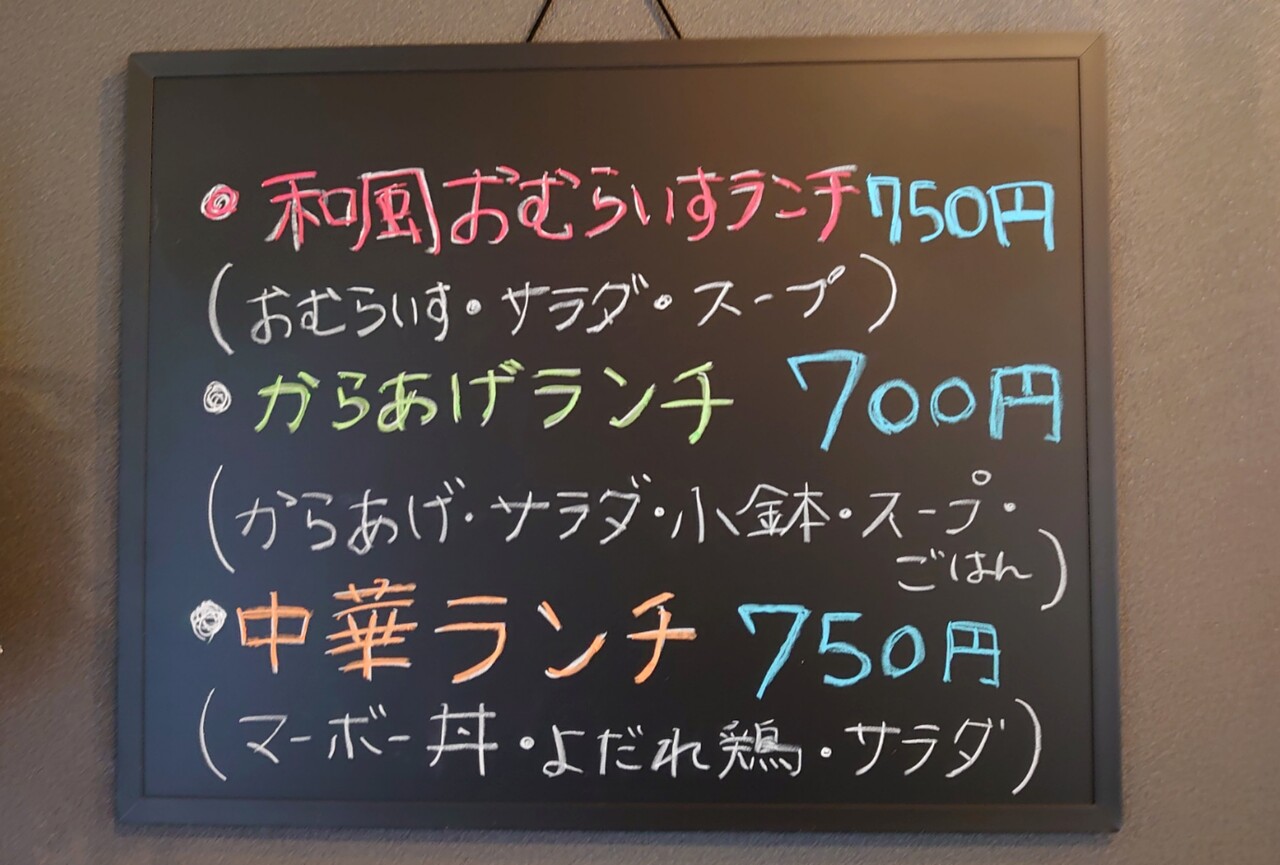 • 和風おむらいすランチ 750円
(おむらいす・サラダ・スープ)
• からあげランチ 700円
(からあげ・サラダ・小鉢・スープ・
ごはん)
• 中華ランチ 750円
(マーボー丼・よだれ鶏・サラダ)